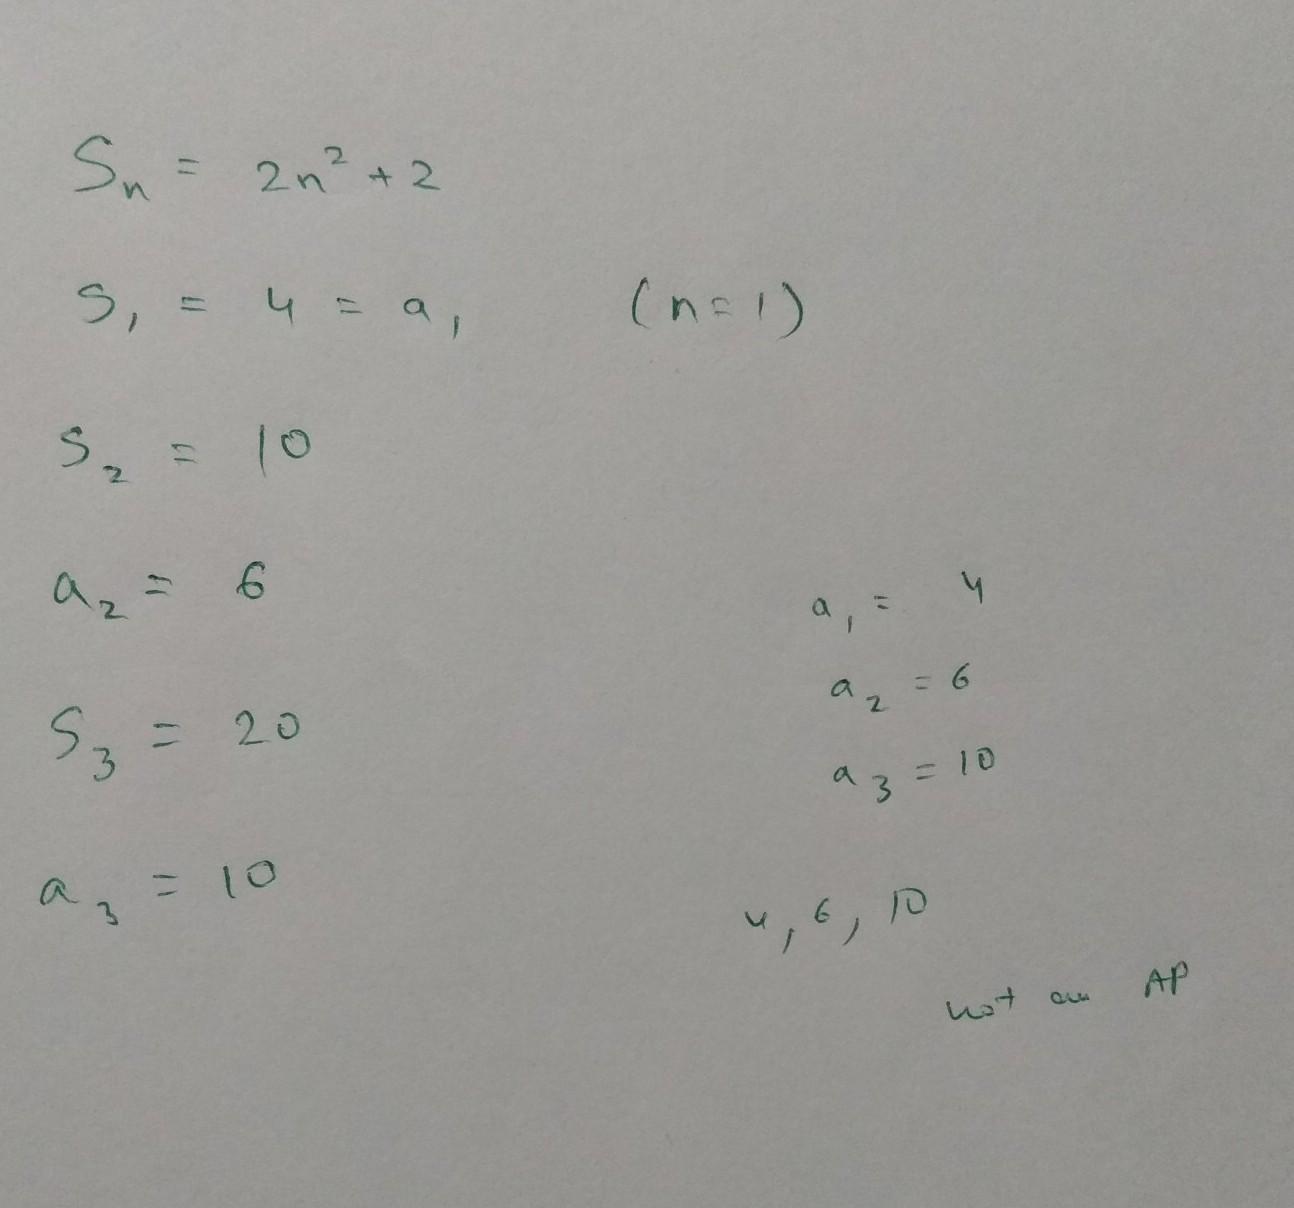 Sₙ = 2n² + 2
S₁ = 4 = a₁ (n=1)
S₂ = 10
a₂ = 6
S₃ = 20
a₃ = 10
a₁ = 4
a₂ = 6
a₃ = 10
4, 6, 10
not an AP